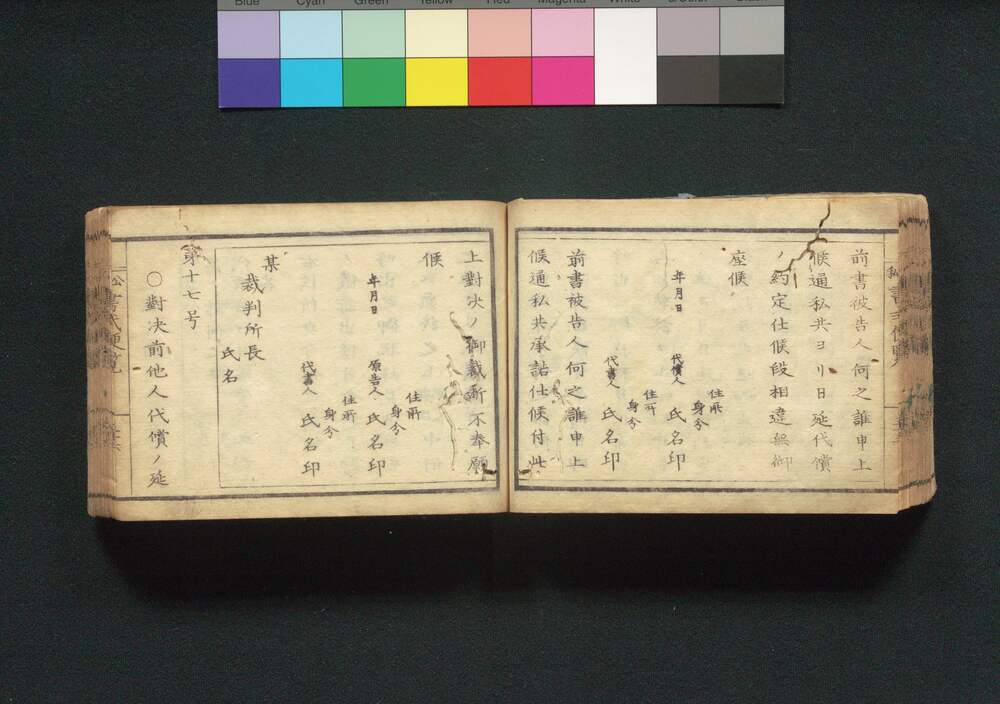 Blue Cyan Green Yellow Red Magenta White 3/Color Black
前書被告人何之誰申上
候通私共ヨリ日延代償
ノ約定仕候段相違無御
座候
年月日
住所
身分
代償人 氏名印
住所
身分
代書人 氏名印
前書被告人何之誰申上
候通私共承諾仕候付此
上對决ノ御裁断不奉願
候
年月日
住所
身分
原告人 氏名印
住所
身分
代書人 氏名印
某
裁判所長
氏名
第十七号
〇對决前他人代償ノ延